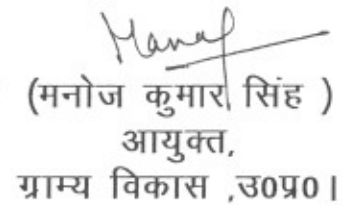 Manoj
(मनोज कुमार सिंह )
आयुक्त,
ग्राम्य विकास ,उ0प्र0।